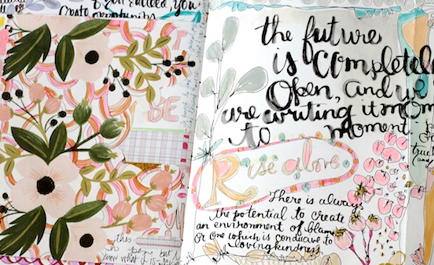 you exceed, you
BE
this
the future
is completel
Open, and we
are writing it mom
to moment
Rise above
There is always
the potential to create
an environment of blam
OR one which is conducive to
lovingkindness